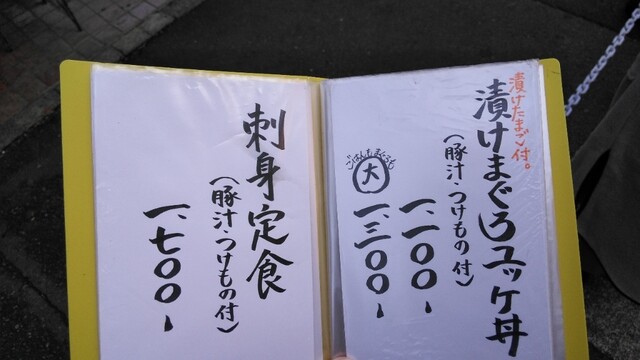 漬けたまご付。
漬けまぐろユッケ丼
(豚汁・つけもの付)
一、一〇〇-
ごはんもまぐろも
大
一、三〇〇-
刺身定食
(豚汁・つけもの付)
一、七〇〇-